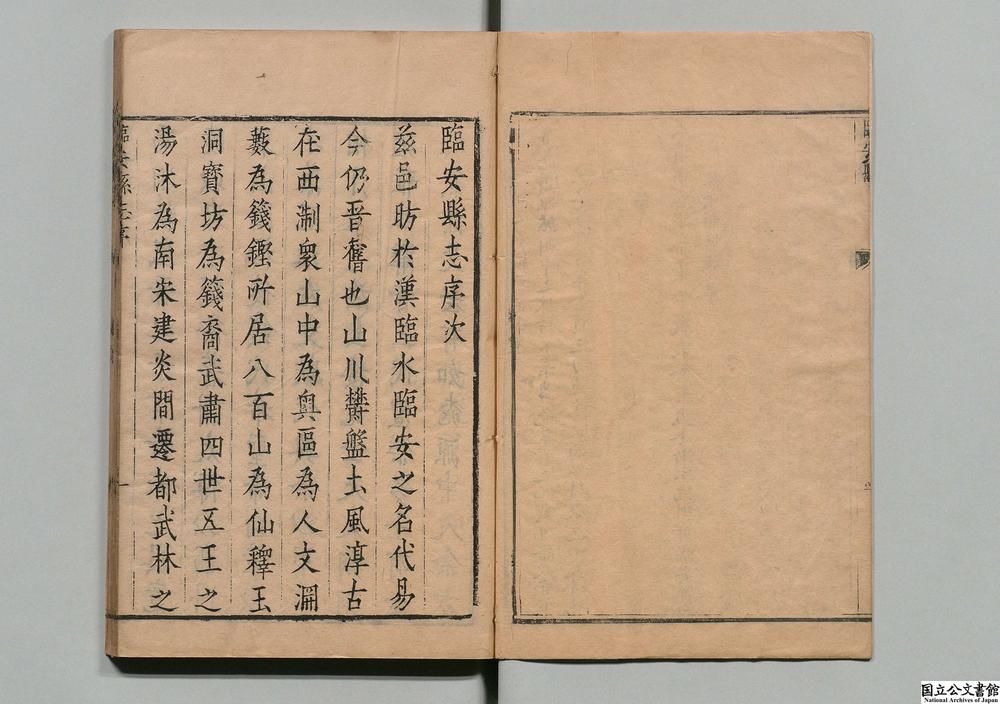 臨安縣志序次
茲邑昉於漢臨水臨安之名代易
今仍晋舊也山川欝盤土風淳古
在西淛衆山中為奥區為人文淵
藪為籛鏗所居八百山為仙釋玉
洞寶坊為籛裔武肅四世五王之
湯沐為南宋建炎間遷都武林之
臨安縣志序
一
国立公文書館
National Archives of Japan